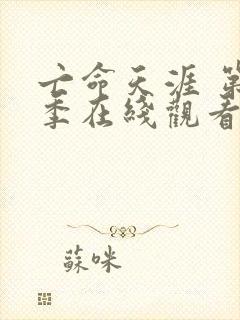 亡命天涯 第
季在綫觀看
蘇咪